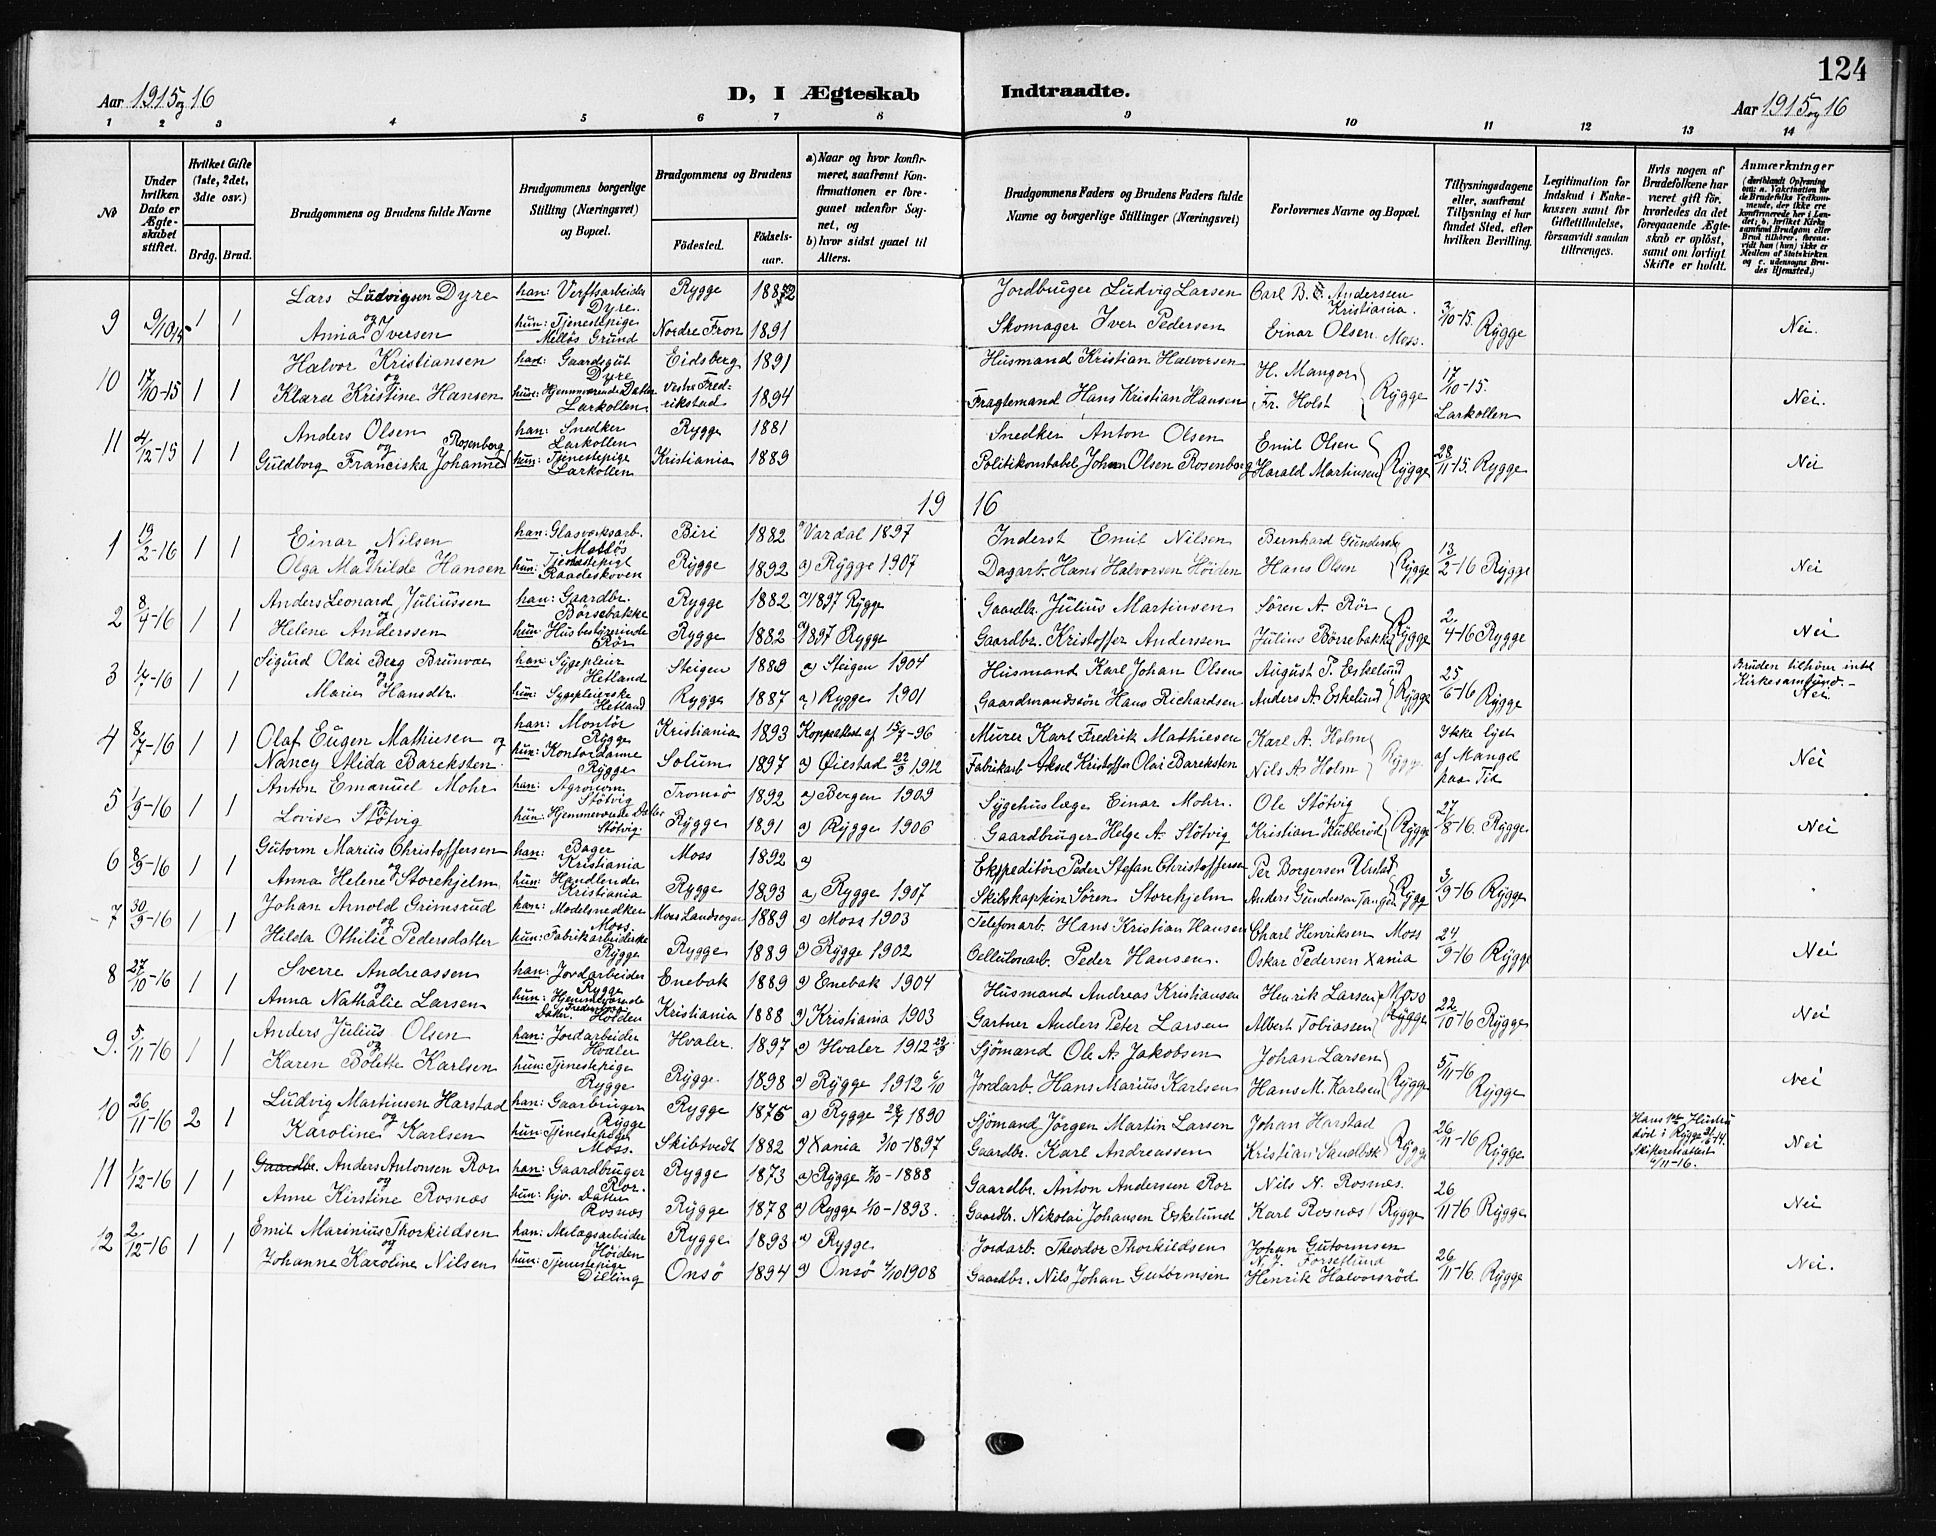 124
Aar 1915 og 16
D, I Ægteskab Indtraadte.
Aar 1915 og 16
1 2 3 4 5 6 7 8 9 10 11 12 13 14
No
Under hvilken Dato er Ægteskabet stiftet.
Hvilket Gifte (1ste, 2det, 3die osv.)
Brdg. Brud.
Brudgommens og Brudens fulde Navne
Brudgommens borgerlige Stilling (Næringsvei) og Bopæl.
Brudgommens og Brudens
Fødested. Fødselsaar.
a) Naar og hvor konfirmeret, saafremt Konfirmationen er foregaaet udenfor Sognet, og
b) hvor sidst gaaet til Alters.
Brudgommens Faders og Brudens Faders fulde Navne og borgerlige Stillinger (Næringsvei)
Forlovernes Navne og Bopæl.
Tillysningsdagene eller, saafremt Tillysning ei har fundet Sted, efter hvilken Bevilling.
Legitimation for Indskud i Enkekassen samt for Giftetilladelse, forsaavidt saadan tiltrænges.
Hvis nogen af Brudefolkene har været gift før, hvorledes da det foregaaende Ægteskab er opløst, samt om lovligt Skifte er holdt.
Anmærkninger
(deriblandt Oplysning om: a. Vakcination for de Brudefolks Vedkommende, der ikke ere konfirmerede her i Landet; b. hvilket Kirkesamfund Brudgom eller Brud tilhører, forsaavidt han (hun) ikke er Medlem af Statskirken og c. udensogns Brudes Hjemsted.)
9 9/10 15 1 1 Lars Ludvigsen Dyre han: Verftsarbeider Dyre. Rygge 1882 Jordbruger Ludvig Larsen Carl B. Anderssen Kristiania. 3/10-15. Rygge Nei.
og Anna Iversen hun: Tjenestepige Melløs Grund Nordre Fron 1891 Skomager Iver Pedersen Einar Olsen Moss.
10 17/10-15 1 1 Halvor Kristiansen han: Gaardsgut Dyre Eidsberg 1891 Husmand Kristian Halvorsen H. Mangor 17/10-15. Larkollen Nei.
og Klara Kristine Hansen hun: Hjemmværende Datter Larkollen Vestre Fredrikstad 1894 Fragtemand Hans Kristian Hansen Fr. Holst Rygge
11 4/12-15 1 1 Anders Olsen han: Snedker Larkollen Rygge 1881 Snedker Anton Olsen Emil Olsen 28/11-15. Rygge Nei
og Guldborg Franciska Johanne Rosenberg hun: Tjenestepige Larkollen Kristiania 1889 Politikonstabel Johan Olsen Rosenberg Harald Martinsen Rygge
19 16
1 19/2-16 1 1 Einar Nilsen han: Glasverksarb. Melløs Biri 1882 a) Vardal 1897 Inderst Emil Nilsen Bernhard Gundersen 13/2-16 Rygge Nei
og Olga Mathilde Hansen hun: Tjenestepige Raadeskoven Rygge 1892 a) Rygge 1907 Dagarb. Hans Halvorsen Høiden Hans Olsen Rygge
2 8/4-16 1 1 Anders Leonard Juliussen han: Gaardbr. Børsebakke Rygge 1882 a) 1897 Rygge Gaardbr. Julius Martinsen Søren A. Rör 2/4-16 Rygge Nei
og Helene Anderssen hun: Husbestyrerinde Rör Rygge 1882 a) 1897 Rygge Gaardbr. Kristoffer Anderssen Julius Børrebakke Rygge
3 1/7-16 1 1 Sigurd Olai Berg Brunvær han: Sygepleier Hetland Steigen 1889 a) Steigen 1904 Husmand Karl Johan Olsen August P. Eskelund 25/6-16 Rygge Bruden tilhører intet Kirkesamfund. - Nei
og Marie Hansdtr. hun: Sygepleierske Hetland Rygge 1887 a) Rygge 1901 Gaardmandssøn Hans Richardsen Anders A. Eskelund Rygge
4 8/7-16 1 1 Olaf Eugen Mathiesen og han: Montør Rygge Kristiania 1893 Koppeattest af 15/7-96 Murer Karl Fredrik Mathiesen Karl A. Holm Ikke lyst af Mangel paa Tid Nei
Nancy Alida Bareksten. hun: Kontordame Rygge Solum 1897 a) Øiestad 22/9 1912 Fabrikarb Aksel Kristoffer Olai Bareksten Nils As Holm Rygge
5 1/9-16 1 1 Anton Emanuel Mohr han: Agronom Støtvig Tromsø 1892 a) Bergen 1909 Sygehuslæge Einar Mohr. Ole Støtvig 27/8-16. Rygge Nei
og Lovise Støtvig hun: Hjemmeværende Datter Støtvig. Rygge 1891 a) Rygge 1906 Gaardbruger Helge A. Støtvig Kristian Kubberød Rygge
6 8/9-16 1 1 Gutorm Marius Christoffersen han: Bager Kristiania Moss 1892 a) Ekspeditør Peder Stefan Christoffersen Per Borgersen Urstad 3/9-16 Rygge
og Anna Helene Storehjelm hun: Handlende Kristiania Rygge 1893 a) Rygge 1907 Skibskaptein Søren Storehjelm Anders Gundersen Tangen Rygge
7 30/9-16 1 1 Johan Arnold Grimsrud han: Modelsnedker Moss Moss Landsogn 1889 a) Moss 1903 Telefonarb. Hans Kristian Hansen Charl Henriksen Moss 24/9-16 Rygge Nei
og Hilda Othilie Pedersdatter hun: Fabrikarbeiderske Rygge Rygge 1889 a) Rygge 1902 Cellulosarb. Peder Hansen. Oskar Pedersen Xania
8 27/10-16 1 1 Sverre Andreassen han: Jordarbeider Rygge Enebak 1889 a) Enebak 1904 Husmand Andreas Kristiansen Henrik Larsen Moss 22/10-16 Rygge Nei
og Anna Nathalie Larsen hun: Hjemmeværende Datter. Høiden Kristiania 1888 a) Kristiania 1903 Gartner Anders Peter Larsen Albert Tobiassen Rygge
9. 5/11-16 1 1 Anders Julius Olsen han: Jordarbeider Hvaler Hvaler. 1897 a) Hvaler 1912 29/9 Sjömand Ole As Jakobsen Johan Larsen 5/11-16 Rygge Nei
og Karen Bolette Karlsen hun: Tjenestepige Rygge Rygge. 1898 a) Rygge 1912 6/10 Jordarb. Hans Marius Karlsen Hans M. Karlsen Rygge
10 26/11-16 2 1 Ludvig Martinsen Harstad han: Gaarbruger Rygge Rygge 1875 a) Rygge 28/9 1890 Sjömand Jørgen Martin Larsen Johan Harstad 26/11-16 Rygge Hans 1ste Hustru død i Rygge 21/6-14. Skifteretsattest 6/11-16. Nei
og Karoline Karlsen hun: Tjenestepige Moss. Skibtvedt 1882 a) Xania 3/10-1897 Gaardbr. Karl Andreassen Kristian Sandbæk Rygge
11 1/12-16 1 1 Gaardbr. Anders Antonsen Ror han: Gaardbruger Ror. Rygge 1873 a) Rygge 7/10-1888 Gaardbr. Anton Andersen Ror Nils N. Rosnæs. 26/11-16 Rygge Nei
og Anne Kirstine Rosnæs hun: hjv. Datter Rosnæs Rygge 1878 a) Rygge 1/10-1893. Gaardbr. Nikolai Johansen Eskelund Karl Rosnæs Rygge
12 2/12-16 1 1 Emil Marinius Thorkildsen han: Anlagsarbeider Høiden Rygge 1893 a) Rygge Jordarb. Theodor Thorkildsen Johan Gutormsen 26/11-16. Rygge Nei.
og Johanne Karoline Nilsen hun: Tjenestepige Dilling Onsö 1894 a) Onsö 4/10 1908 Gaardbr. Nils Johan Gutormsen N. J. Forseflund Henrik Halvorsröd